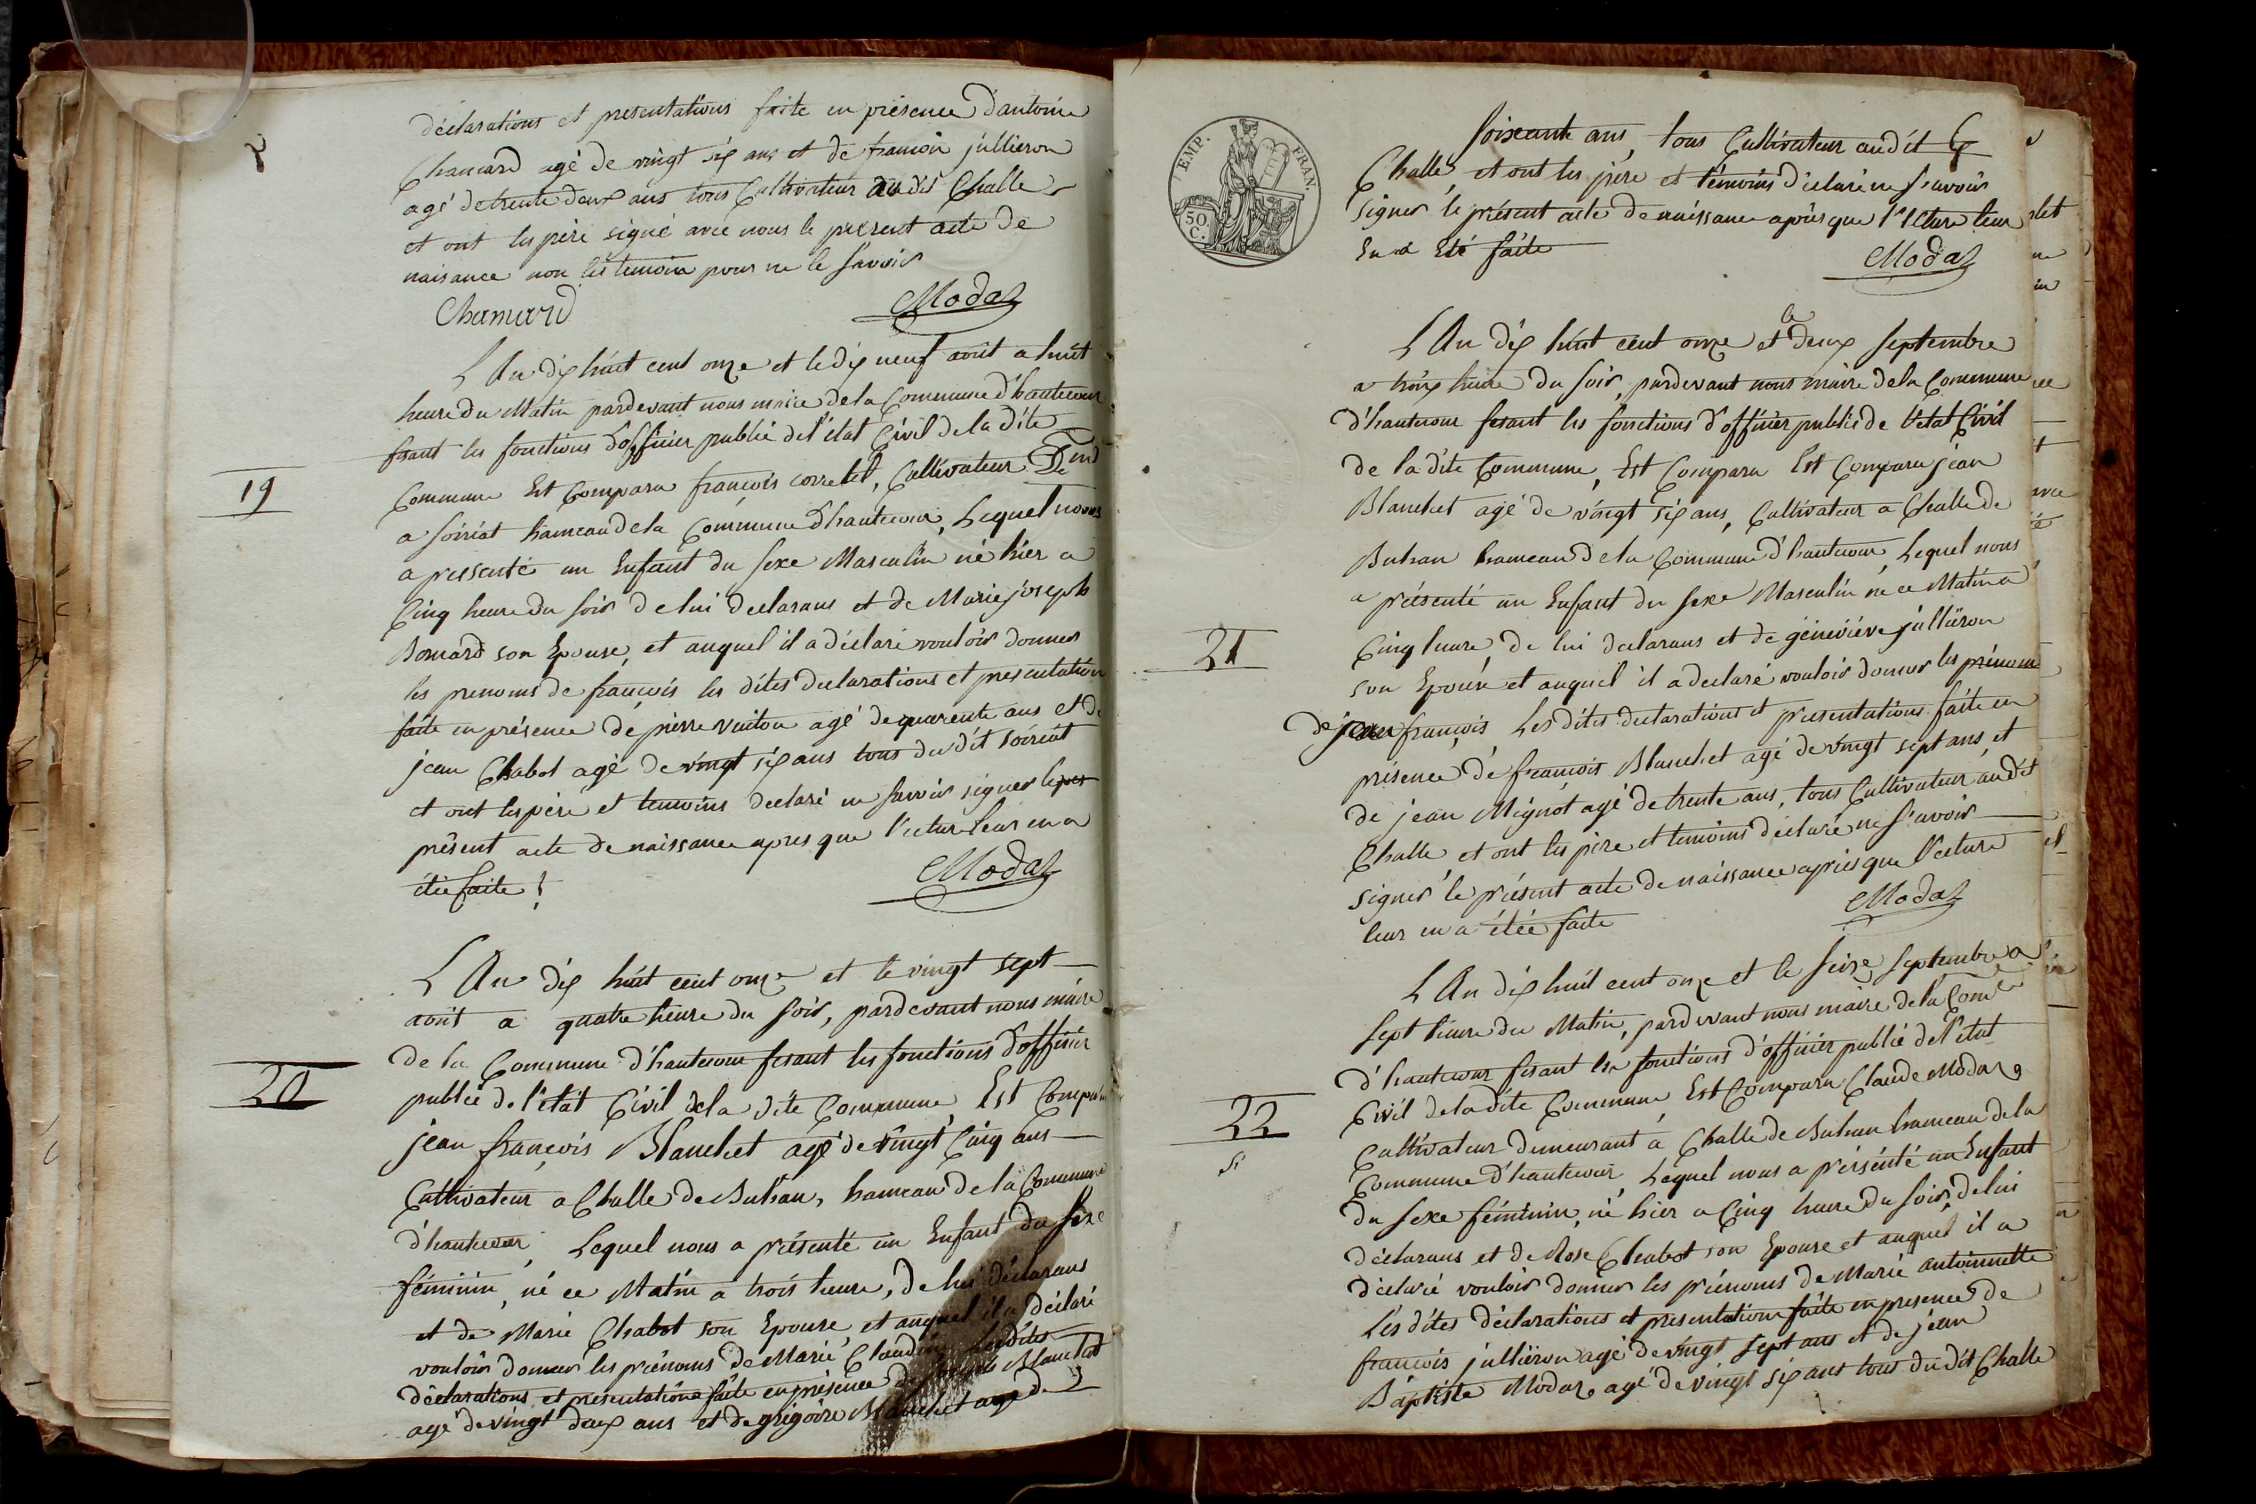 déclarations et presentations faite en présence d'antoine
Chanard agé de vingt six ans et de francois jullieron
agé de trente deux ans tous Cultivateur audit Challe
et ont les père signé avec nous le present acte de
naisance non les temoin pour ne le savoir
Chamard Modas
L An dix huit cent onze et le dix neuf aoüt a huit
heure du Matin pardevant nous maire de la Commune d'hautecour
fesant les fonctions d'officier public de l'état Civil de la dite
19
Commune Est Comparu françois corretel, Cultivateur
a soiriat hameau de la Commune d'hautecour, Lequel nous
a presenté un Enfant du sexe Masculin né hier a
Cinq heure du soir de lui declarans et de Marie joseph
Bomard son Epouse, et auquel il a déclaré vouloir donner
les prenoms de françois les dites declarations et presentation
faite en présence de pierre vuiton agé de quarente ans et de
jean Chabot agé de vingt six ans tous du dit soiriat
et ont les père et temoins declaré ne savoir signer le pre
présent acte de naissance apres que l'ecture leur en a
étée faite
Modas
L An dix huit cent onze et le vingt sept
aoüt a quatre heure du soir, pardevant nous maire
de la Commune d'hautecour fesant les fonctions d'officier
20
public de l'état Civil de la dite Commune, Est Comparu
jean françois Blanchet agé de vingt Cinq ans
Cultivateur a Challe de Buhan, hameau de la Commune
d'hautecour, Lequel nous a présenté un Enfant du sexe
féminin, né ce Matin a trois heure, de lui déclarans
et de Marie Chabot son Epouse et auquel il a déclaré
vouloir donner les prénoms de Marie Claudine Lesdites
déclarations et presentations faite en présence de Blanchet
agé de vingt deux ans et de grégoire Blanchet agé de
EMP. FRAN.
50 C.
soixante ans, tous Cultivateur audit
Challe et ont les père et témoins déclaré ne savoir
signer le présent acte de naissance après que l'ecture leur
En a Eté faite
Modas
L An dix huit cent onze et le deux septembre
a trois heure du soir, pardevant nous maire de la Commune
d'hautecour fesant les fonctions d'officier public de l'état Civil
de la dite Commune, Est Comparu Est Comparu jean
Blanchet agé de vingt six ans, Cultivateur a Challe de
Buhan hameau de la Commune d'hautecour Lequel nous
a présenté un Enfant du sexe Masculin né ce Matin a
21
Cinq heure, de lui declarans et de géneviéve jullieron
son Epouse et auquel il a declaré vouloir donner les prénoms
de jean françois Les dites declarations et presentations faite en
présence de francois Blanchet agé de vingt sept ans et
de jean Mignot agé de trente ans, tous Cultivateur audit
Challe et ont les pere et temoins déclaré ne savoir
signer le présent acte de naissance après que l'ecture
leur en a étée faite
Modas
L An dix huit cent onze et le seize septembre a
sept heure du Matin, pardevant nous maire de la Com
d'hautecour fesant les fonctions d'officier public de l'état
22
Civil de la dite Commune Est Comparu Claude Modas
Cultivateur demeurant a Challe de Buhan hameau de la
Commune d'hautecour Lequel nous a présénté un Enfant
du sexe féminin, né hier a Cinq heure du soir, de lui
déclarans et de Rose Chabot son Epouse et auquel il a
déclaré vouloir donner les prénoms de Marie antoinette
Les dites déclarations et presentation faite en presence de
francois jullieron agé de vingt sept ans et de jean
Baptiste Modas agé de vingt six ans tous du dit Challe